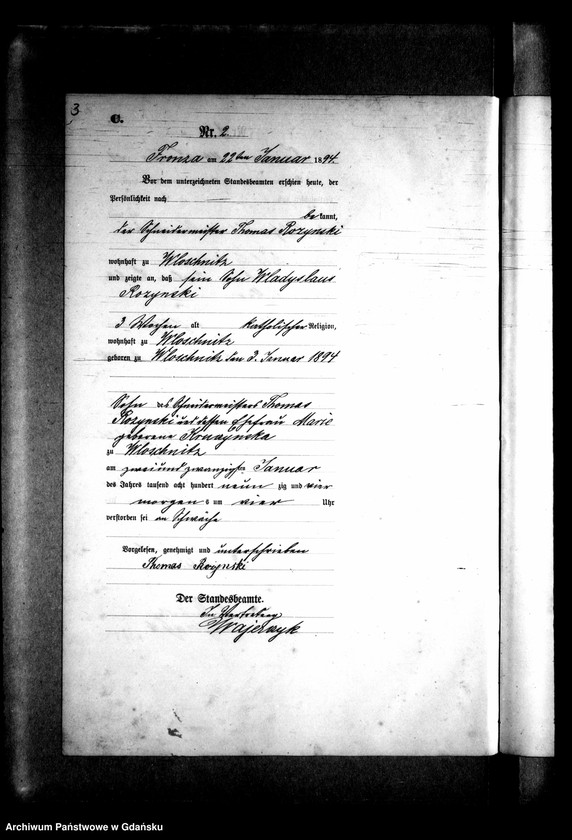 3
C.
Nr. 2.
Fronza am 22ten Januar 1894.
Vor dem unterzeichneten Standesbeamten erschien heute, der
Persönlichkeit nach
be kannt,
der Schneidermeister Thomas Rozynski
wohnhaft zu Wloschnitz
und zeigte an, daß sein Sohn Wladyslaus
Rozynski
3 Wochen alt katholischer Religion,
wohnhaft zu Wloschnitz
geboren zu Wloschnitz den 3. Januar 1894
Sohn des Schneidermeisters Thomas
Rozynski und dessen Ehefrau Marie
geborene Kruszynska
zu Wloschnitz
am zweiundzwanzigsten Januar
des Jahres tausend acht hundert neun zig und vier
morgen s um vier Uhr
verstorben sei an Schwäche
Vorgelesen, genehmigt und unterschrieben
Thomas Rozynski
Der Standesbeamte.
In Vertretung
Archiwum Państwowe w Gdańsku